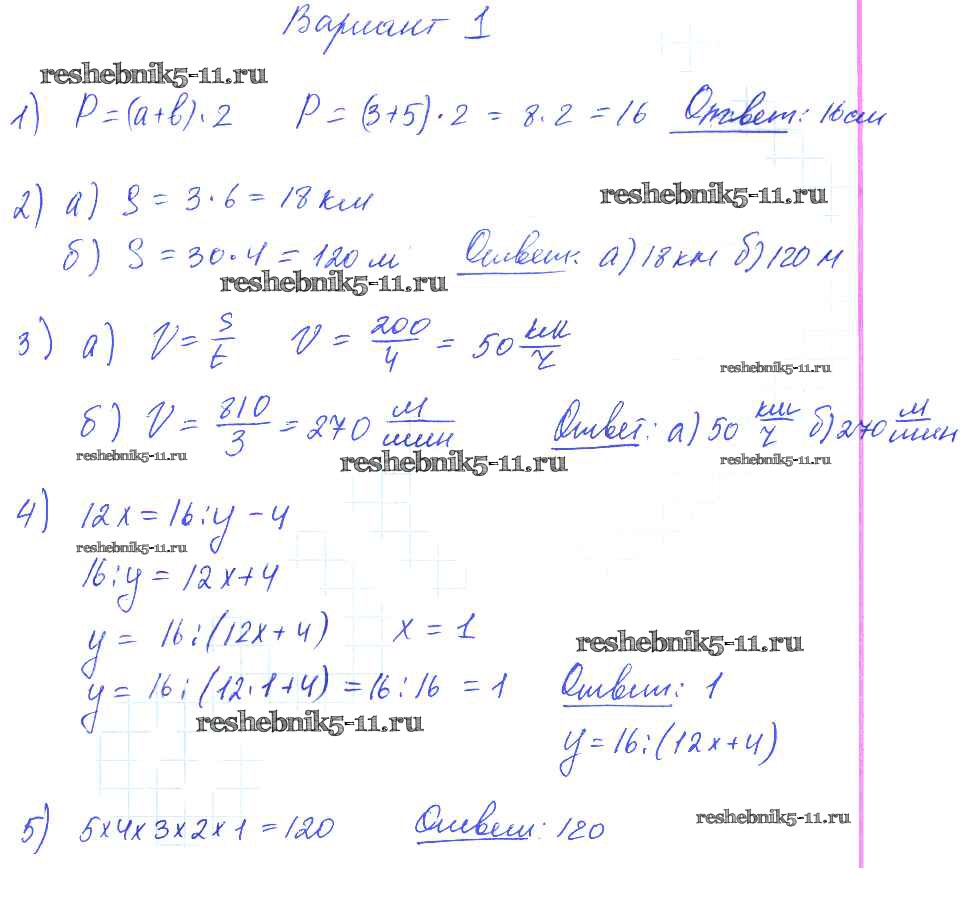 Вариант 1
reshebnik5-11.ru
1) P=(a+b)·2 P=(3+5)·2=8·2=16 Ответ: 16см
reshebnik5-11.ru
2) а) S=3·6=18км
б) S=30·4=120м Ответ: а)18км б)120м
reshebnik5-11.ru
3) а) V=S/t V=200/4=50 км/ч
reshebnik5-11.ru
б) V=810/3=270 м/мин Ответ: а)50 км/ч б)270 м/мин
reshebnik5-11.ru reshebnik5-11.ru reshebnik5-11.ru
4) 12x=16:y-4
reshebnik5-11.ru
16:y=12x+4
y=16:(12x+4) x=1
reshebnik5-11.ru
y=16:(12·1+4)=16:16=1 Ответ: 1
reshebnik5-11.ru
y=16:(12x+4)
5) 5x4x3x2x1=120 Ответ: 120
reshebnik5-11.ru